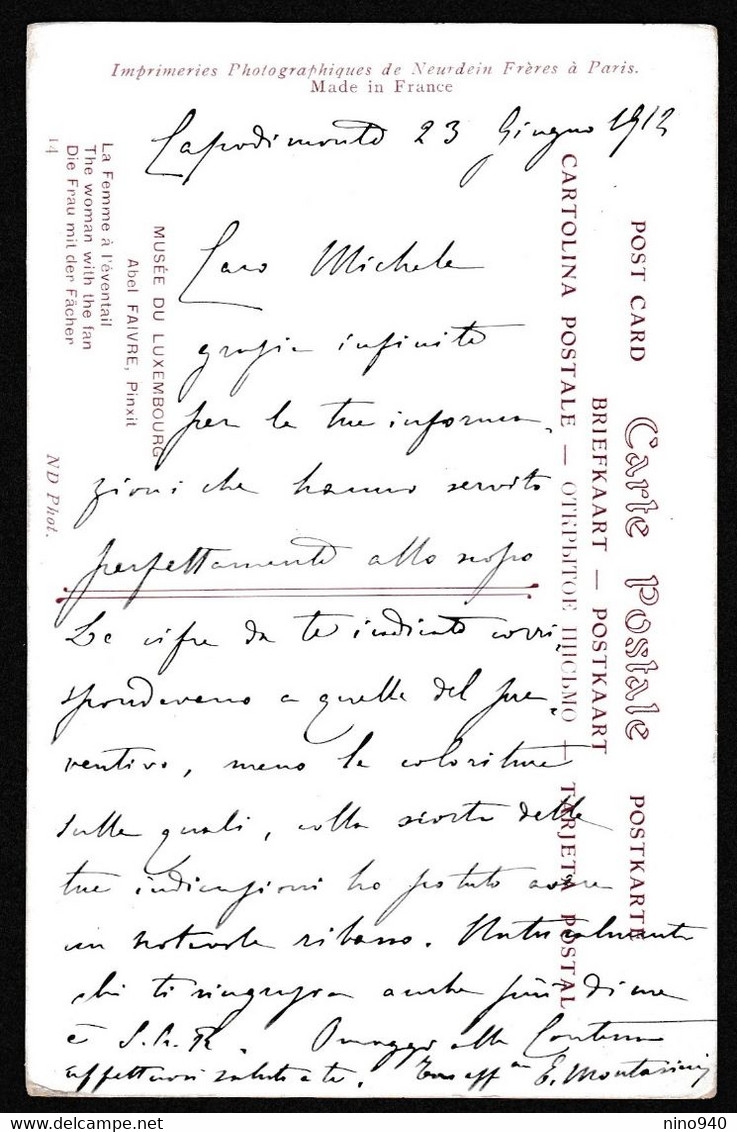 Imprimeries Photographiques de Neurdein Frères à Paris.
Made in France
Capodimonte 23 Giugno 1912
Caro Michele
grazie infinite
per le tue informa-
zioni che hanno servito
perfettamente allo scopo
Le cifre da te indicate corri-
spondevano a quelle del pre-
ventivo, meno le coloriture
sulle quali, colla scorta delle
tue indicazioni ho potuto avere
un notevole ribasso. Naturalmente
chi ti ringrazia anche più di me
è S.A.R. Omaggi alla Contessa
affettuosi saluti a te. Tuo aff. E. Montasini
La Femme à l'éventail
The woman with the fan
Die Frau mit der Fächer
14
MUSÉE DU LUXEMBOURG
Abel FAIVRE, Pinxit
ND Phot.
POST CARD Carte Postale POSTKARTE
BRIEFKAART — POSTKAART
CARTOLINA POSTALE — ОТКРЫТОЕ ПИСЬМО — TARJETA POSTAL
nino940